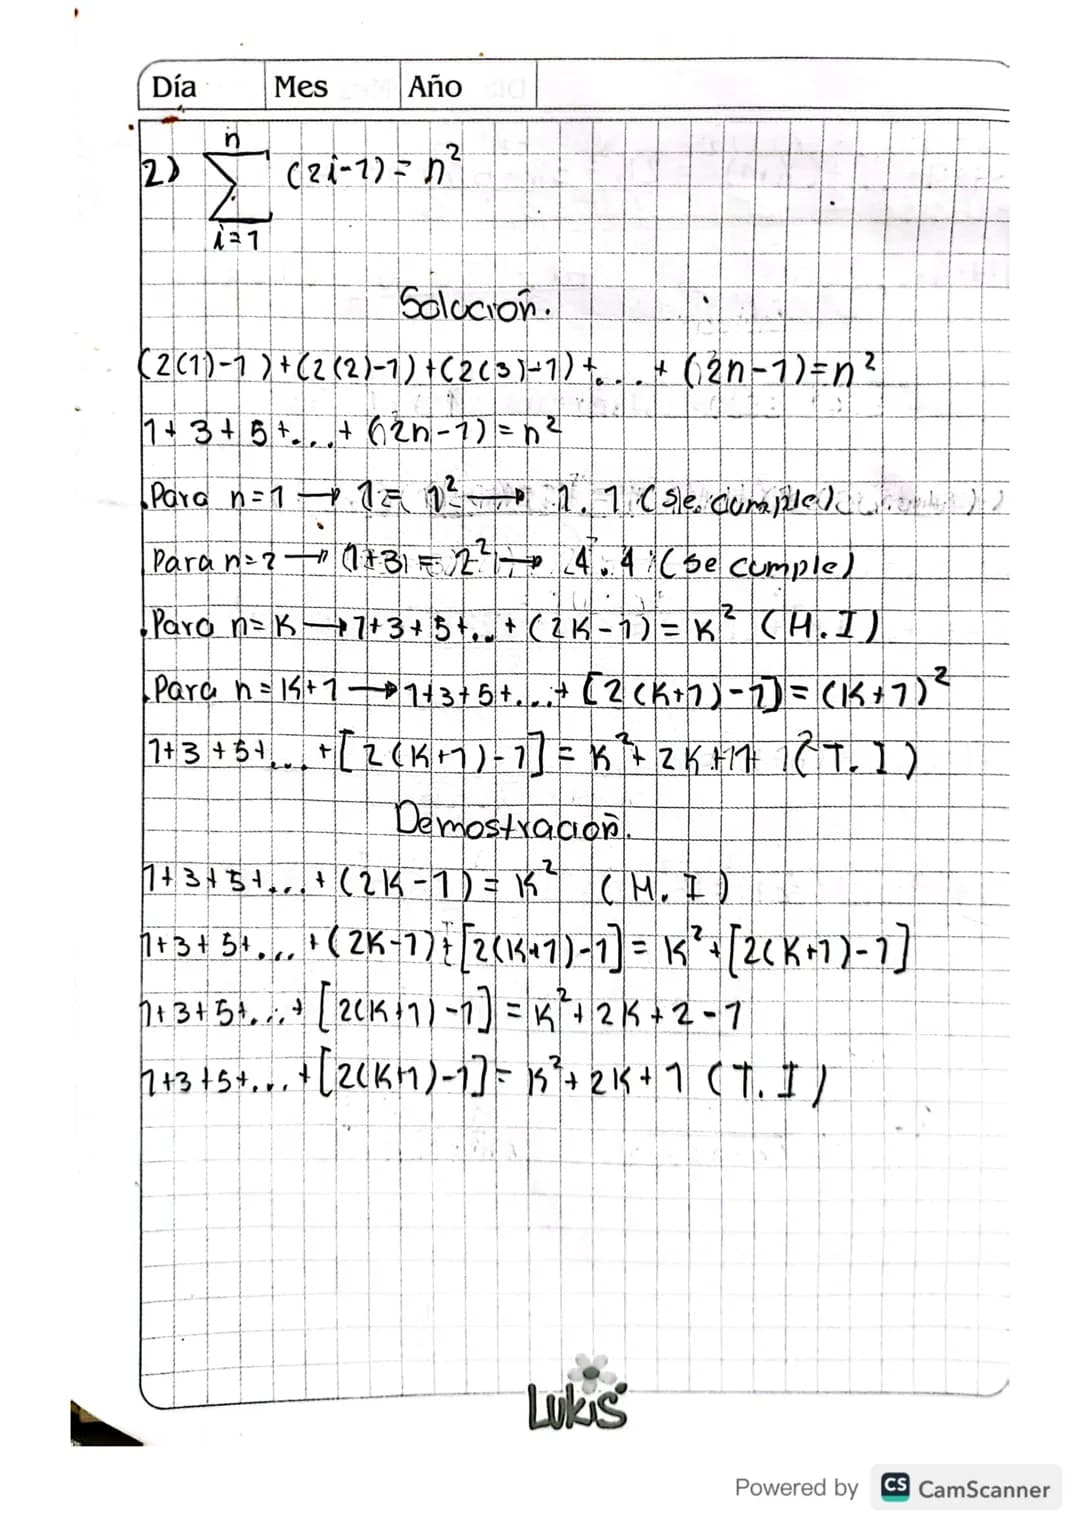 Día Mes Año
2) n∑i=1 (2i-1) = n²
Solución.
(2(1)-1)+(2(2)-1)+(2(3)-1)+...+(2n-1)=n²
1+3+5+...+(2n-1)=n²
.Para n=1 → 1= 1² → 1. 1 (se cumple)
Para n=2 → (1+3) = 2² → 4. 4 (se cumple)
.Para n=K → 1+3+5+...+(2K-1)=K² (H.I)
.Para n=K+1 → 1+3+5+...+[2(K+1)-1]=(K+1)²
1+3+5+...+[2(K+1)-1]=K²+2K+1 (T.I)
Demostración.
1+3+5+...+(2K-1)=K² (H.I)
1+3+5+...+(2K-1)+[2(K+1)-1]=K²+[2(K+1)-1]
1+3+5+...+[2(K+1)-1]=K²+2K+2-1
1+3+5+...+[2(K+1)-1]=K²+2K+1 (T.I)
Lukis
Powered by CS CamScanner